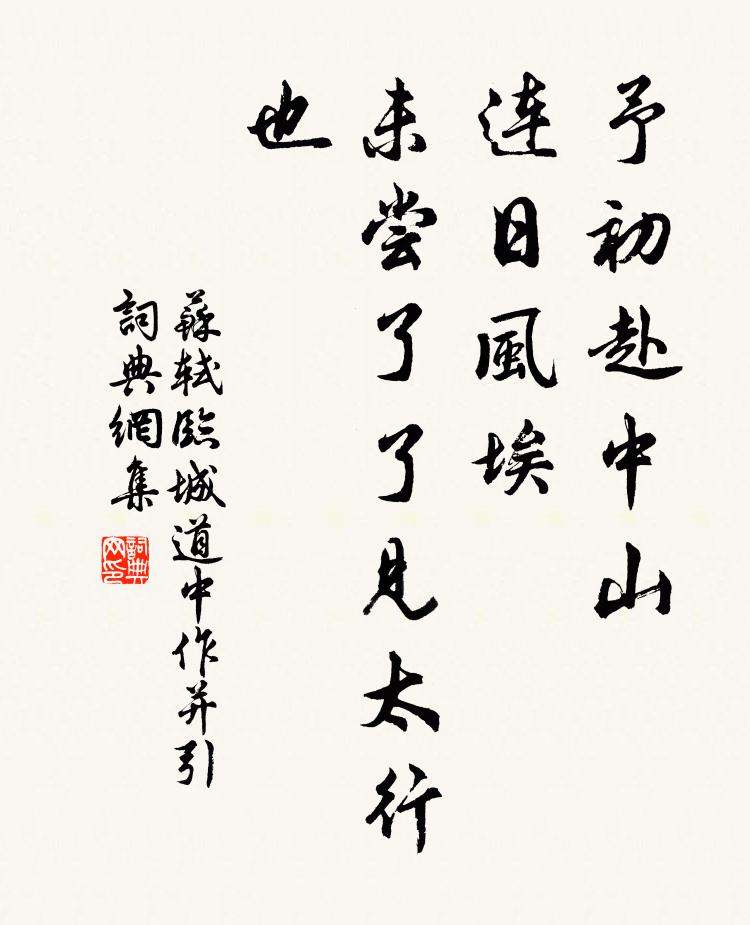 予初赴中山
連日風埃
未尝了了見太行
也
蘇軾臨城道中作并引
詞典網集
詞典网印